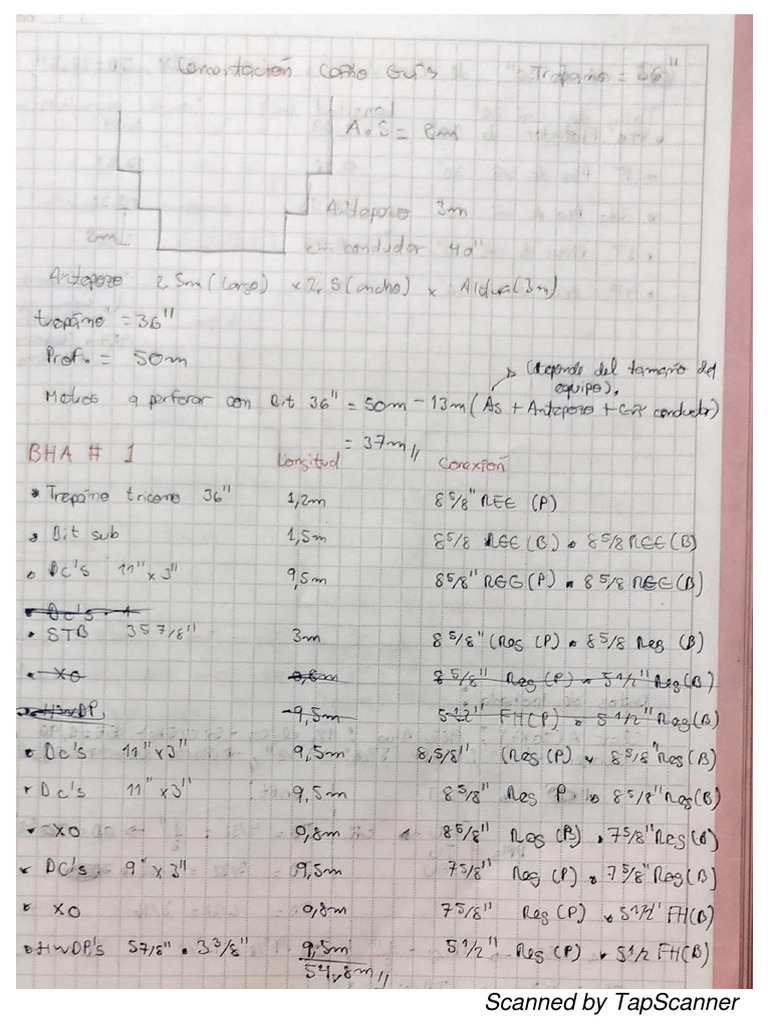 Cementación Casing Guía Trépano = 36"
A.S = 8m
Antepozo 3m
2m
Cñ conductor 40"
Antepozo 2,5m (largo) x 2,5 (ancho) x Altura (3m)
trepáno = 36"
Prof. = 50m
(depende del tamaño del
equipo).
Metros a perforar con Bit 36" = 50m - 13m (As + Antepozo + Cñr conductor)
= 37m //
BHA # 1 Longitud Conexión
• Trepáno tricono 36" 1,2m 8 5/8" REG (P)
• Bit sub 1,5m 8 5/8 REG (B) • 8 5/8 REG (B)
• DC's 11" x 3" 9,5m 8 5/8" REG (P) • 8 5/8 REG (B)
• DC's
• STB 35 7/8" 3m 8 5/8" (Reg (P) • 8 5/8 Reg (B)
• XO 0,8m 8 5/8" Reg (P) • 5 1/2" Reg (B)
• HWDP, 9,5m 5 1/2" FH (P) • 5 1/2" Reg (B)
• Dc's 11" x 3" 9,5m 8,5/8" (Reg (P) • 8 5/8" Reg (B)
• Dc's 11" x 3" 9,5m 8 5/8" Reg P • 8 5/8" Reg (B)
• XO 0,8m 8 5/8" Reg (P) • 7 5/8" Reg (B)
• DC's 9" x 3" 9,5m 7 5/8" Reg (P) • 7 5/8" Reg (B)
• XO 0,8m 7 5/8" Reg (P) • 5 1/2" FH (B)
• HWDP's 5 7/8" • 3 3/8" 9,5m 5 1/2" Reg (P) • 5 1/2 FH (B)
54,8m //
Scanned by TapScanner